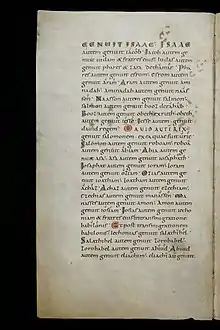 GENUIT ISAAC ISAAC
autem genuit iacob Iacob autem ge
nuit iudam & fratres eius Iudas autem
genuit phares & zara dethamar Pha
res autem genuit esrom esrom autem
genuit aram Aram autem genuit ami
nadab aminadab autem genuit naas
son Naasson autem genuit salmon
salmon autem genuit booz derachab
Booz autem genuit obeth exruth obeth
autem genuit iesse Iesse autem genuit
dauid regem DAUID AUTEM REX
genuit salomonem exea quae fuit uriae
Salomon autem genuit roboam roboam
autem genuit abiam Abia autem ge
nuit asa Asa autem genuit iosaphat
Iosaphat autem genuit ioram Ioram
autem genuit oziam Ozias autem ge
nuit ioatham Ioatham autem genuit
achaz Achaz autem genuit ezechiam
ezechias autem genuit manassen ma
nasses autem genuit amon Amon autem
genuit iosiam Iosias autem genuit iecho
niam & fratres eius intransmigratione
babilonis Et post transmigrationem
babilonis iechonias genuit salathihel
Salathihel autem genuit zorobabel
Zorobabel autem genuit abiud Abiud
autem genuit eliachim eliachim autem